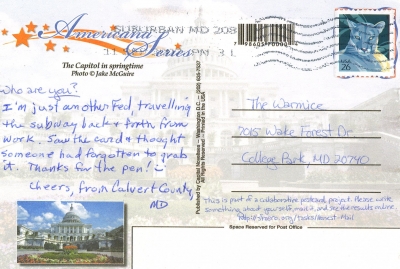 Americana Series
SUBURBAN MD 208
The Capitol in springtime
Photo © Jake McGuire
Who are you?
I'm just another Fed, travelling
the subway back & forth from
work. Saw the card & thought
someone had forgotten to grab
it. Thanks for the pen!
Cheers, from Calvert County,
MD
All Rights Reserved - Printed in the USA
USA
26
The Warmice
7015 Wake Forest Dr.
College Park, MD 20740
This is part of a collaborative postcard project. Please write
something about yourself, mail it, and see the results online.
Space Reserved for Post Office